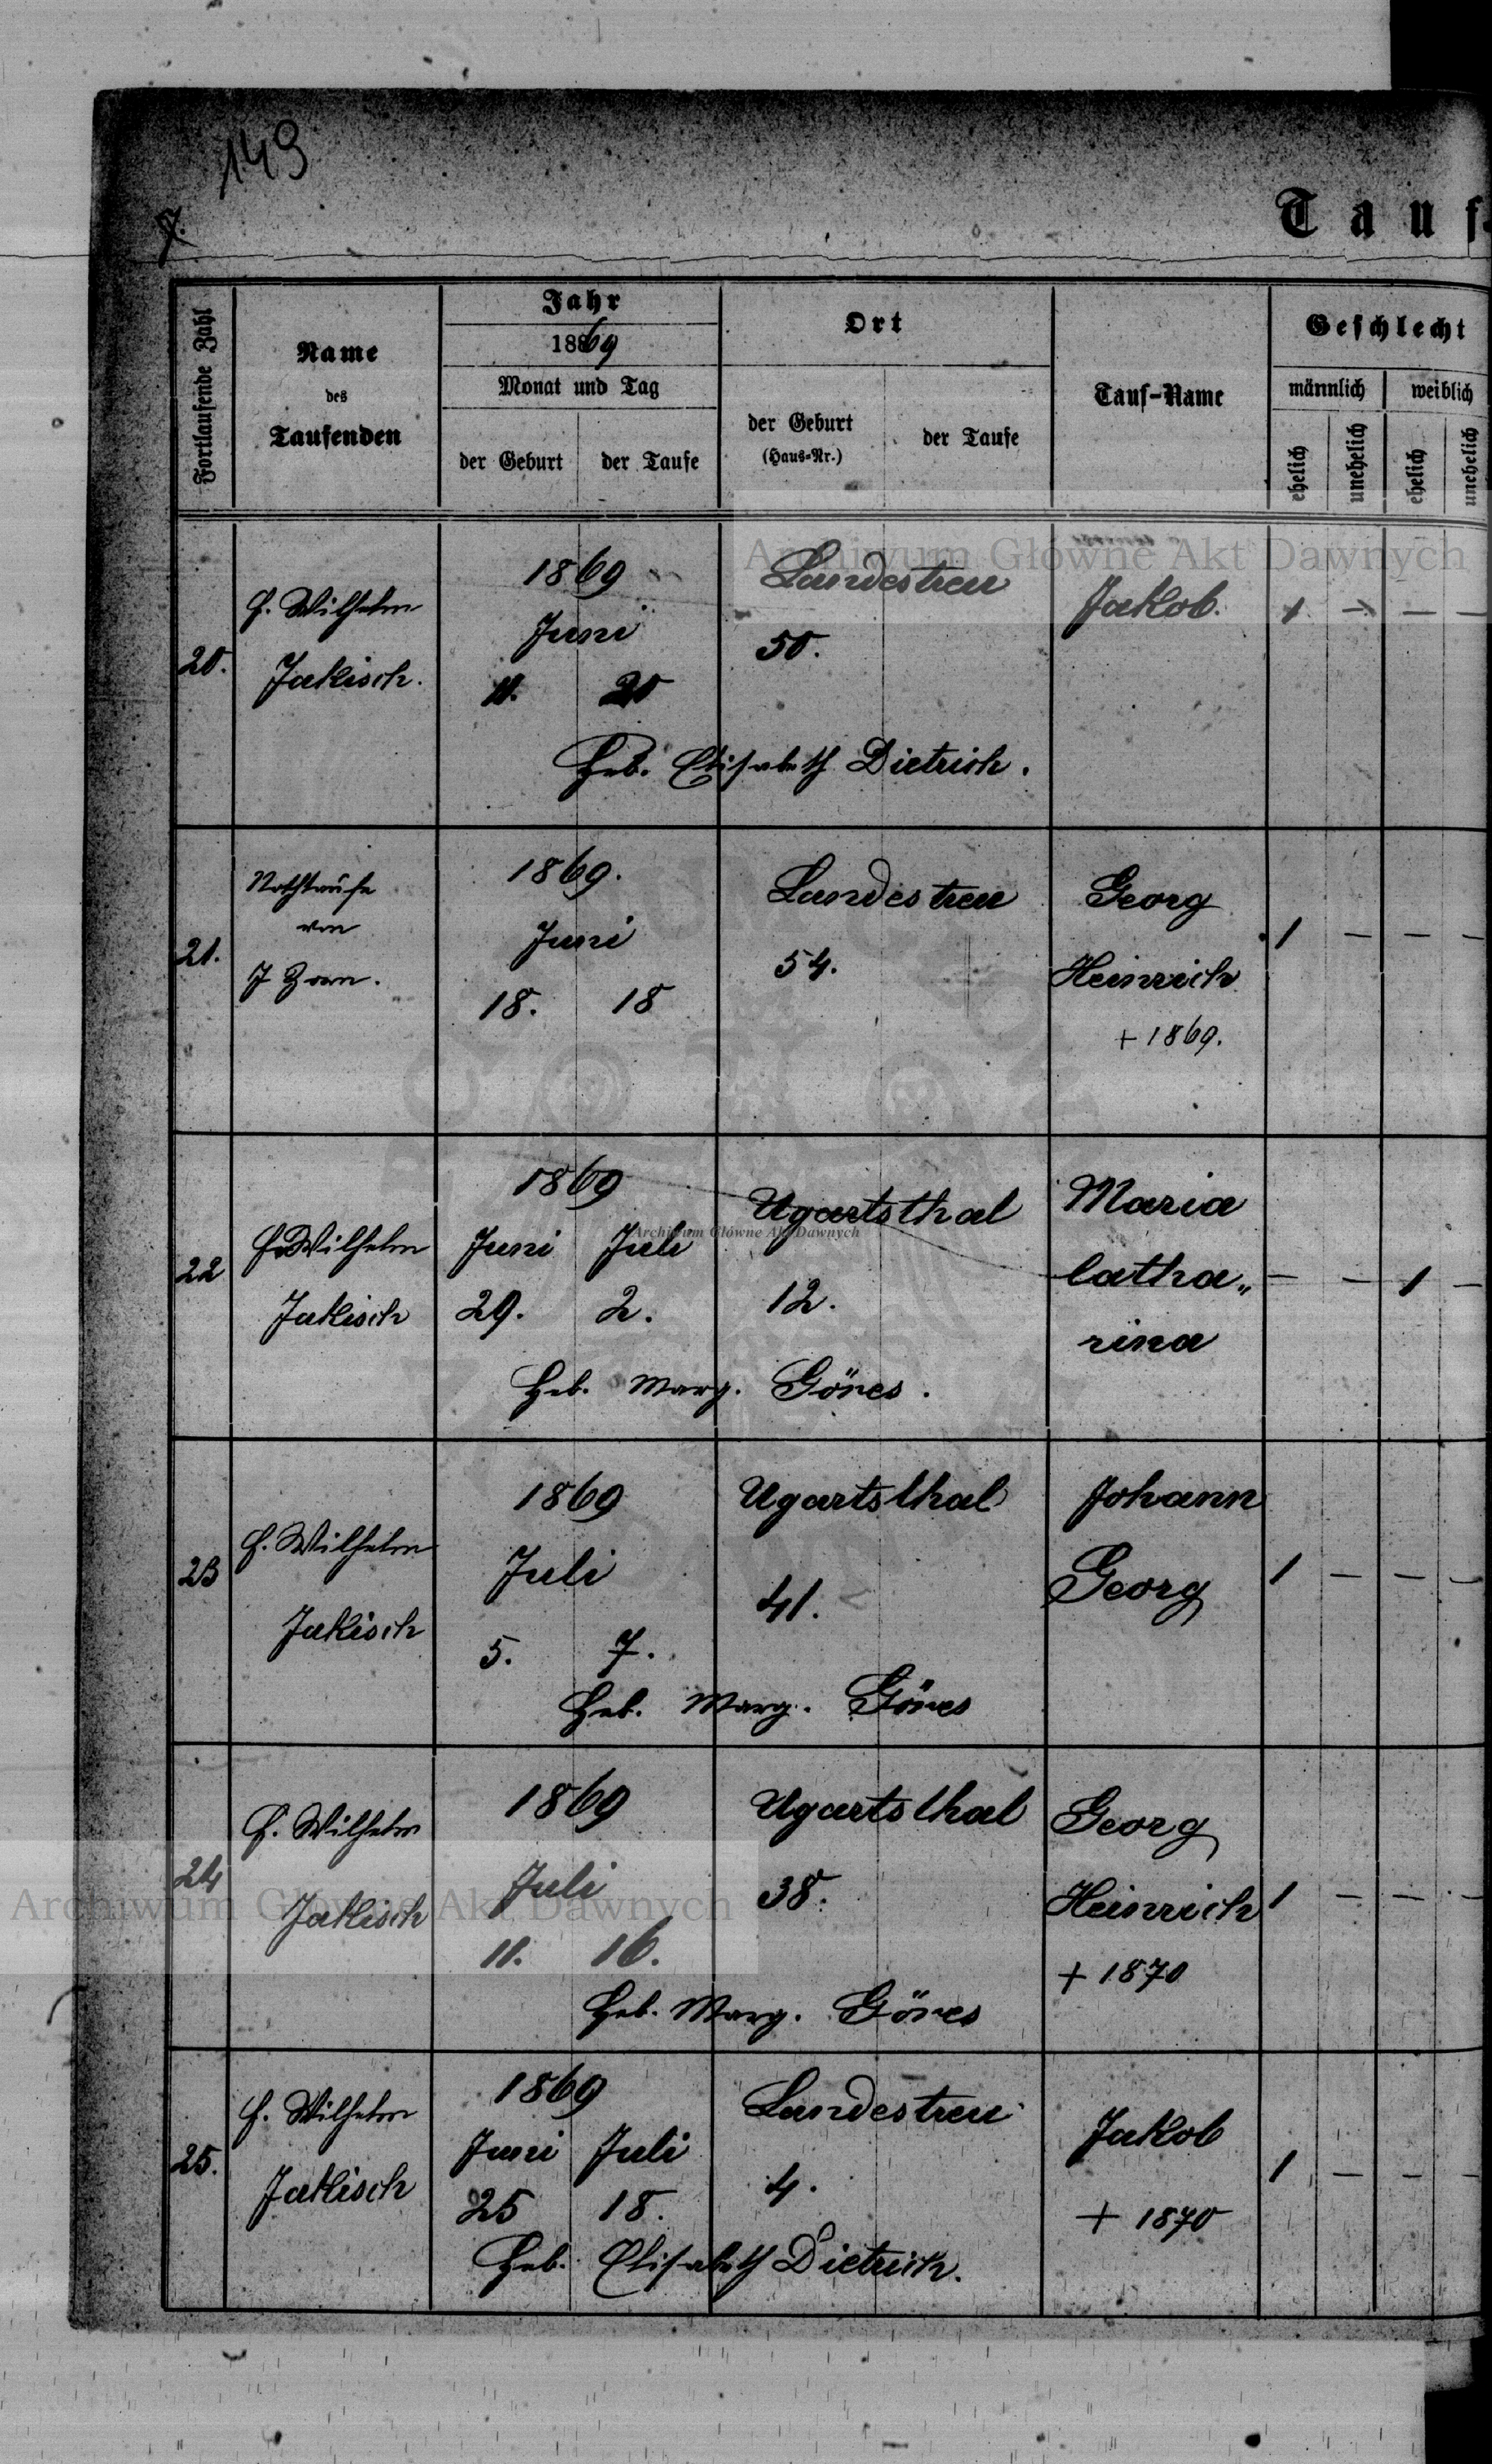 149
Tauf-
Fortlaufende Zahl
Name
des
Taufenden
Jahr
1869
Monat und Tag
der Geburt
der Taufe
Ort
der Geburt
(Haus-Nr.)
der Taufe
Tauf-Name
Geschlecht
männlich
weiblich
ehelich
unehelich
ehelich
unehelich
Archiwum Główne Akt Dawnych
20.
Wilhelm
Jakisch.
1869
Juni
11. 20
Landestreu
50.
Jakob.
1 — — —
Heb. Elisabeth Dietrich.
21.
Nothtaufe
von
J Zorn.
1869.
Juni
18. 18
Landestreu
54.
Georg
Heinrich
+ 1869.
1 — — —
22
Wilhelm
Jakisch
1869
Juni Juli
29. 2.
Ugartsthal
12.
Maria
Catha„
rina
— — 1 —
Archiwum Główne Akt Dawnych
Heb. Marg. Göres.
23
Wilhelm
Jakisch
1869
Juli
5. 7.
Ugartsthal
41.
Johann
Georg
1 — — —
Heb. Marg. Göres
24
Wilhelm
Jakisch
1869
Juli
11. 16.
Ugartsthal
38.
Georg
Heinrich
+ 1870
1 — — —
Archiwum Główne Akt Dawnych
Heb. Marg. Göres
25.
Wilhelm
Jakisch
1869
Juni Juli
25 18.
Landestreu
4.
Jakob
+ 1870
1 — — —
Heb. Elisabeth Dietrich.